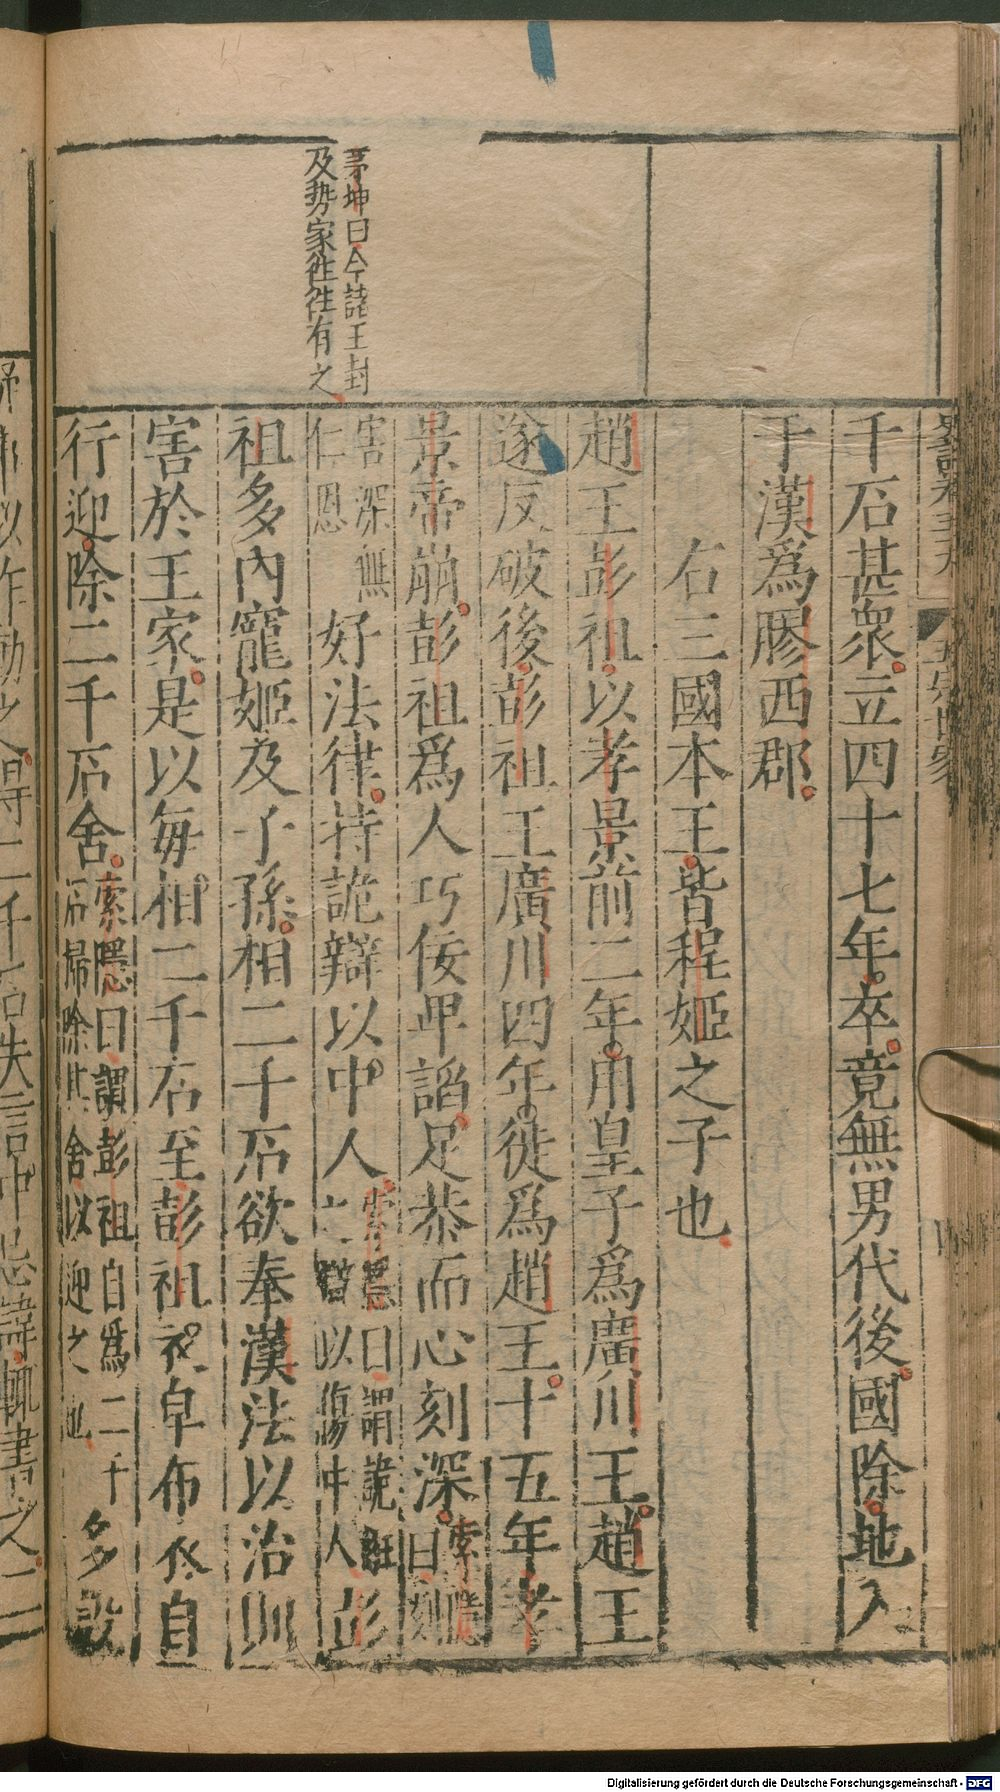 史記卷五十九 五宗世家
千石甚衆立四十七年卒竟無男代後國除地入
于漢爲膠西郡
右三國本王皆程姬之子也
趙王彭祖以孝景前二年用皇子爲廣川王趙王
遂反破後彭祖王廣川四年徙爲趙王十五年孝
景帝崩彭祖爲人巧佞卑諂足恭而心刻深索隱曰刻
害深無仁恩好法律持詭辯以中人索隱曰謂詭誑之辯以傷中人彭
祖多內寵姬及子孫相二千石欲奉漢法以治則
害於王家是以每相二千石至彭祖衣皁布衣自
行迎除二千石舍索隱曰謂彭祖自爲二千石掃除其舍以迎之也多設
茅坤曰今諸王封
及勢家徃徃有之
Digitalisierung gefördert durch die Deutsche Forschungsgemeinschaft - DFG